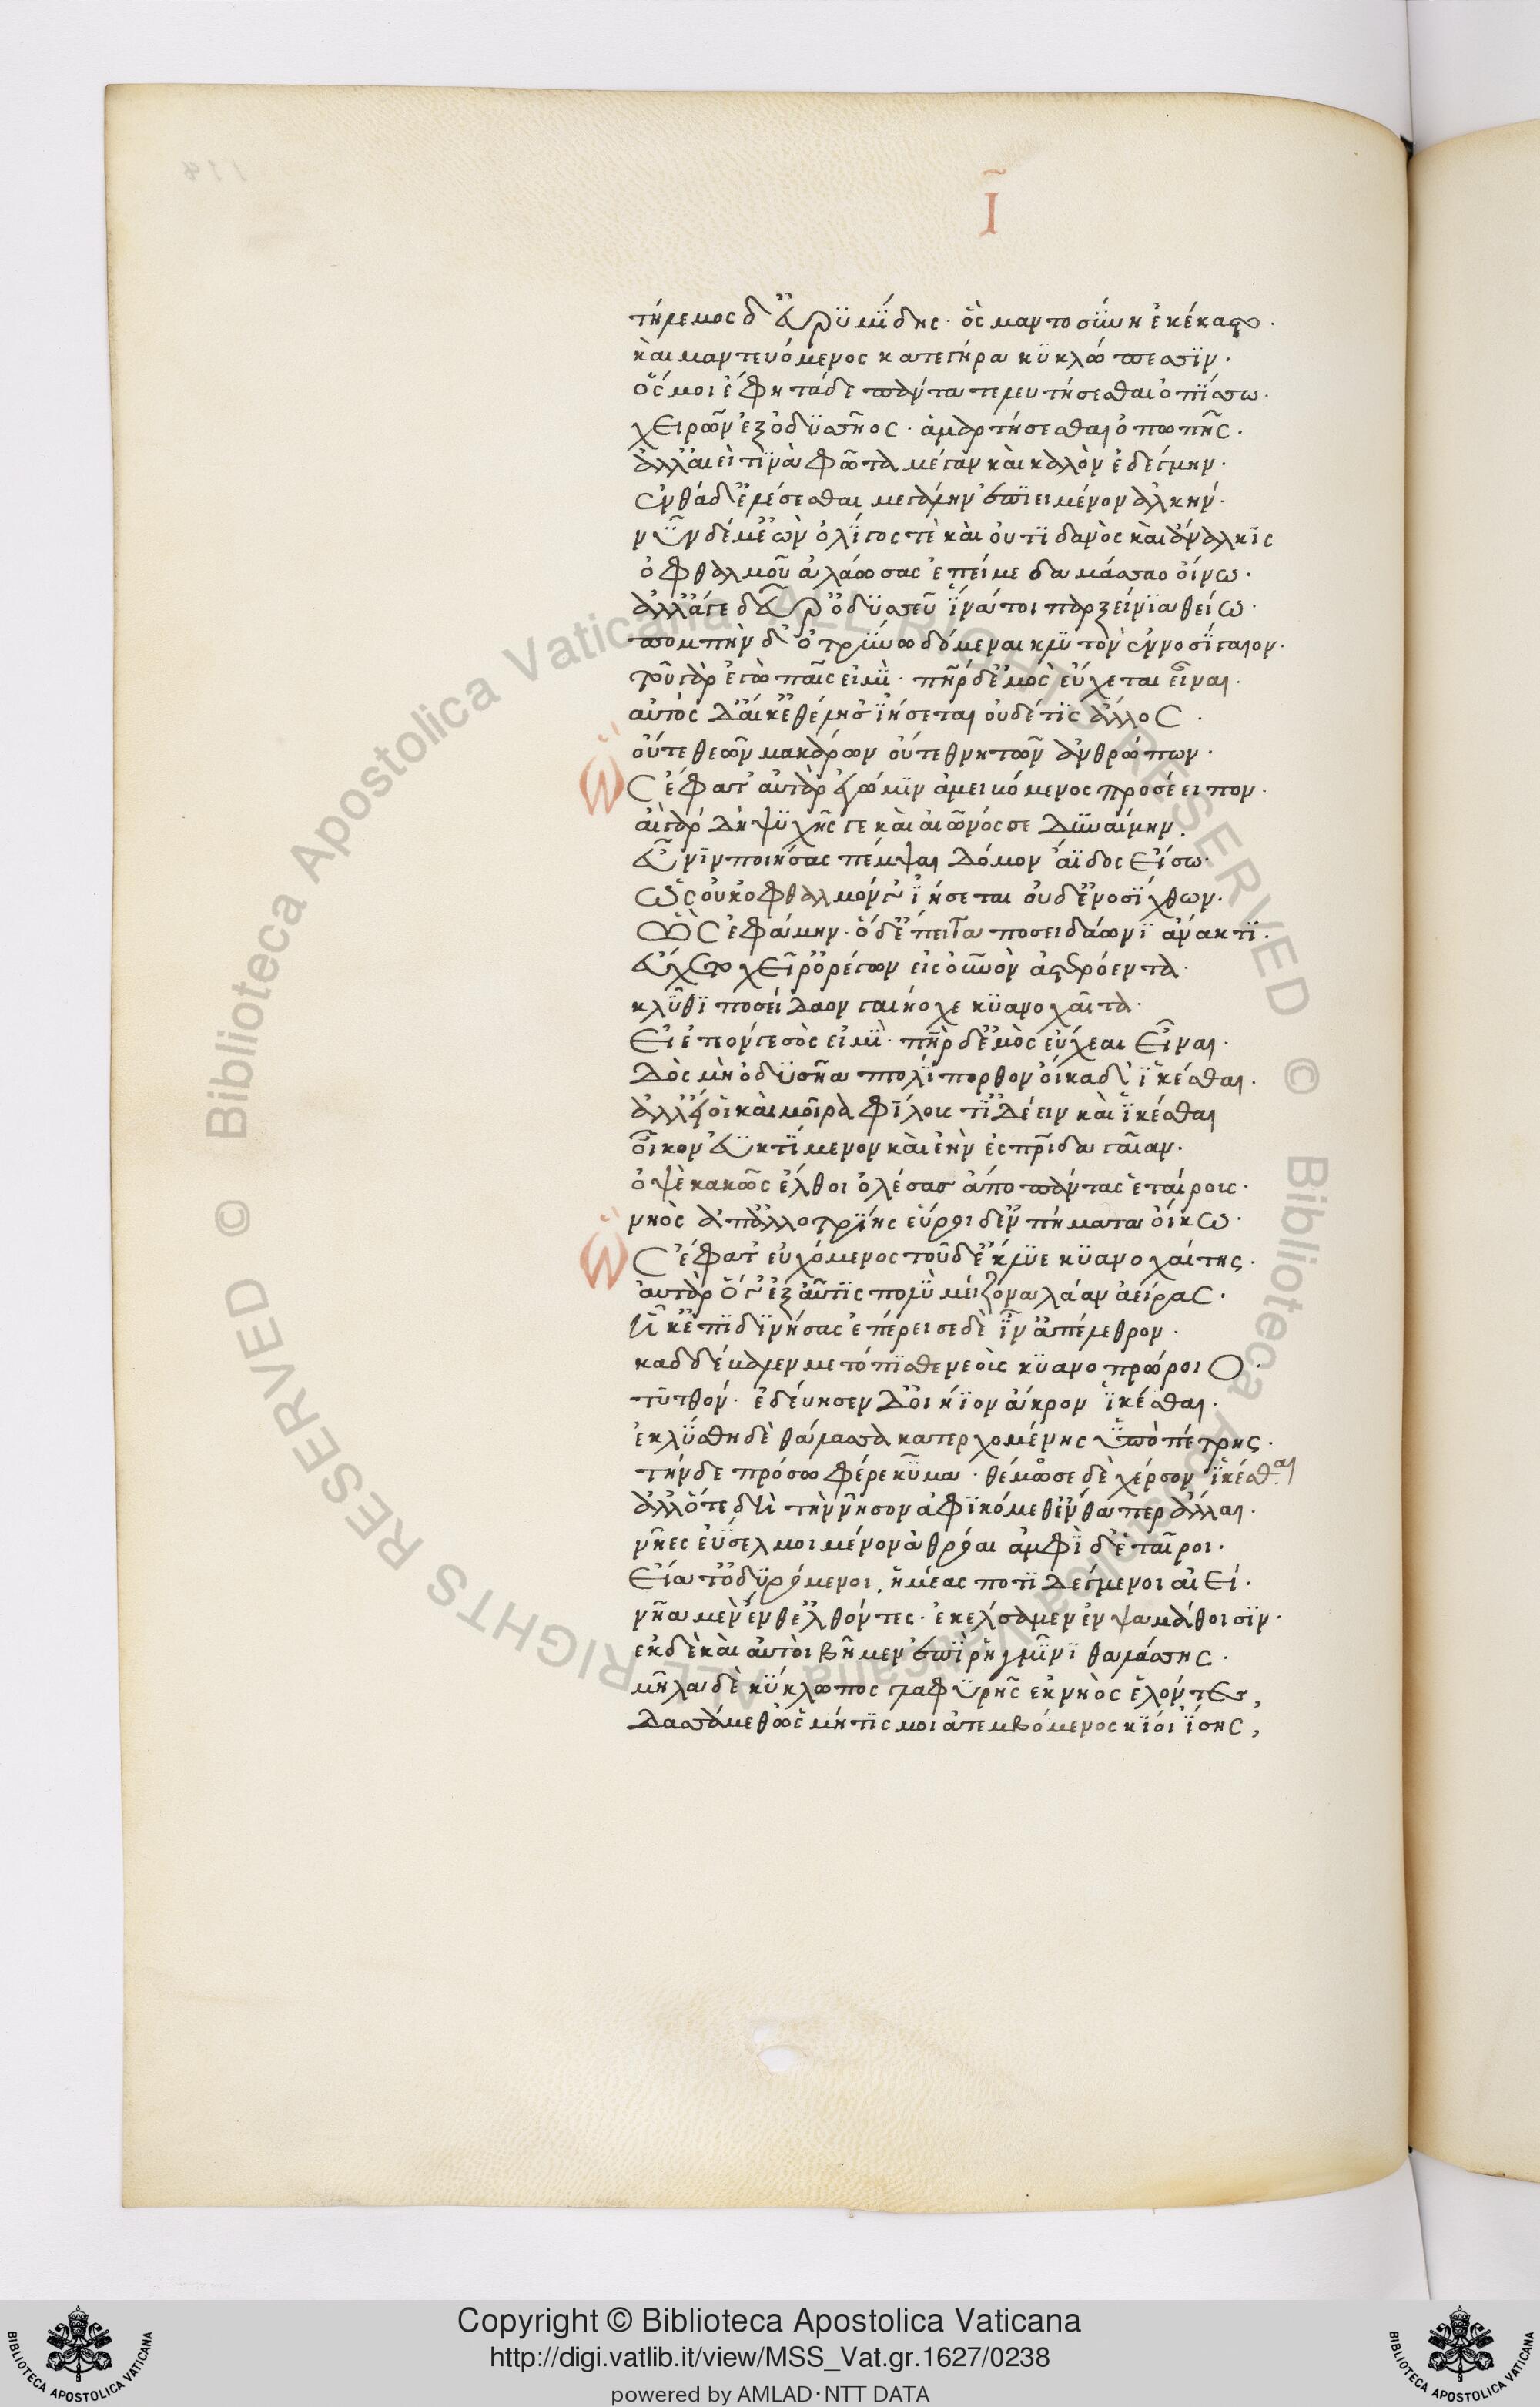 Ι
τήλεμος δ' εὐρϋμίδης· ὃς μαντοσύνη ἐκέκαστο.
καὶ μαντευόμενος κατεγήρα κϋκλώπεσϊν.
ὅς μοι ἔφη τάδε πάντα τελευτήσεσθαι ὀπίσσω.
χειρῶν ἐξ ὀδϋσσῆος· ἁμαρτήσεσθαι ὀπωπῆς.
ἀλλ' αἰεὶ τϊνὰ φῶτα μέγαν καὶ καλὸν ἐδέγμην.
ἐνθάδ' ἐλεύσεσθαι μεγάλην ἐπϊειμένον ἀλκήν.
νῦν δέ μ' ἐὼν ὀλίγος τὲ καὶ οὐτϊδανὸς καὶ ἄναλκις
ὀφθαλμοῦ ἀλάωσας ἐπεί με δαμάσσαο οἴνω.
ἀλλ' ἄγε δεῦρ' ὀδϋσσεῦ ἵνά τοι παρξείνϊα θείω.
πομπὴν δ' ὀτρύνω δόμεναι κλϋτὸν ἐννοσίγαιον.
τοῦ γὰρ ἐγὼ παῖς εἰμὶ· πῆρ δ' ἐμὸς εὔχεται εἶναι.
αὐτὸς δ' αἴκ' ἐθέλησ' ἰήσεται οὐδέ τϊς ἄλλος.
οὔτε θεῶν μακάρων οὔτε θνητῶν ἀνθρώπων.
Ὣς ἔφατ' αὐτὰρ ἐγώ μϊν ἀμειβόμενος προσέειπον.
αἲ γὰρ δὴ ψϋχῆς τε καὶ αἰῶνός σε δϋναίμην.
εὖνϊν ποιήσας πέμψαι δόμον ἄϊδος εἴσω.
ὡς οὐκ ὀφθαλμόν γ' ἰήσεται οὐδ' ἐνοσίχθων.
Ὣς ἐφάμην. ὁ δ' ἔπειτα ποσειδάωνϊ ἄνακτϊ.
εὔχετο χεῖρ' ὀρέγων εἰς οὐρανὸν ἀστερόεντα.
κλῦθϊ ποσείδαον γαιήοχε κϋανοχαῖτα.
Εἰ ἐτεόν γε σὸς εἰμὶ· πῆρ δ' ἐμὸς εὔχεαι εἶναι.
Δὸς μὴ ὀδϋσῆα πτολίπορθον οἴκαδ' ἱκέσθαι.
ἀλλ' εἴ οἱ καὶ μοῖρα φίλους τ' ἰδέειν καὶ ἱκέσθαι
οἶκον ἐϋκτίμενον καὶ ἑὴν ἐς πρῖδα γαῖαν.
ὀψὲ κακῶς ἔλθοι ὀλέσας ἄπο πάντας ἑταίρους.
νηὸς ἀπ' ἀλλοτρίης εὕροι δ' ἐν πήματα οἴκω.
Ὣς ἔφατ' εὐχόμενος τοῦ δ' ἔκλϋε κϋανοχαίτης.
αὐτὰρ ὅ γ' ἐξ αὖτϊς πολὺ μείζονα λάαν ἀείρας.
ἧκ' ἐπϊδϊνήσας ἐπέρεισε δὲ ἶν' ἀπέλεθρον.
καδδέβαλεν μετόπϊσθε νεὸς κϋανοπρώροιο.
τῦτθόν. ἐδεύησεν δ' οἰήϊον ἄκρον ἱκέσθαι.
ἐκλύσθη δὲ θάλασσα κατερχομένης ὑπὸ πέτρης.
τὴν δε πρόσω φέρε κῦμα. θέμωσε δὲ χέρσον ἱκέσθαι
ἀλλ' ὅτε δὴ τὴν νῆσον ἀφϊκόμεθ' ἔνθά περ ἄλλαι.
νῆες ἐΰσελμοι μένον ἀθρόαι ἀμφὶ δ' ἑταῖροι.
Εἵατ' ὀδϋρόμενοι, ἡμέας ποτϊδέγμενοι αἰεί.
νῆα μὲν ἔνθ' ἐλθόντες. ἐκέλσαμεν ἐν ψαμάθοισϊν.
ἐκ δὲ καὶ αὐτοὶ βῆμεν ἐπὶ ῥηγμῖνϊ θαλάσσης.
μῆλα δὲ κύκλωπος γλαφϋρῆς ἐκ νηὸς ἑλόντες,
Δασσάμεθ' ὡς μήτϊς μοι ἀτεμβόμενος κίοι ἴσης,
© Biblioteca Apostolica Vaticana ALL RIGHTS RESERVED © Biblioteca Apostolica Vaticana ALL RIGHTS RESERVED
Copyright © Biblioteca Apostolica Vaticana
http://digi.vatlib.it/view/MSS_Vat.gr.1627/0238
powered by AMLAD·NTT DATA
BIBLIOTECA APOSTOLICA VATICANA
BIBLIOTECA APOSTOLICA VATICANA